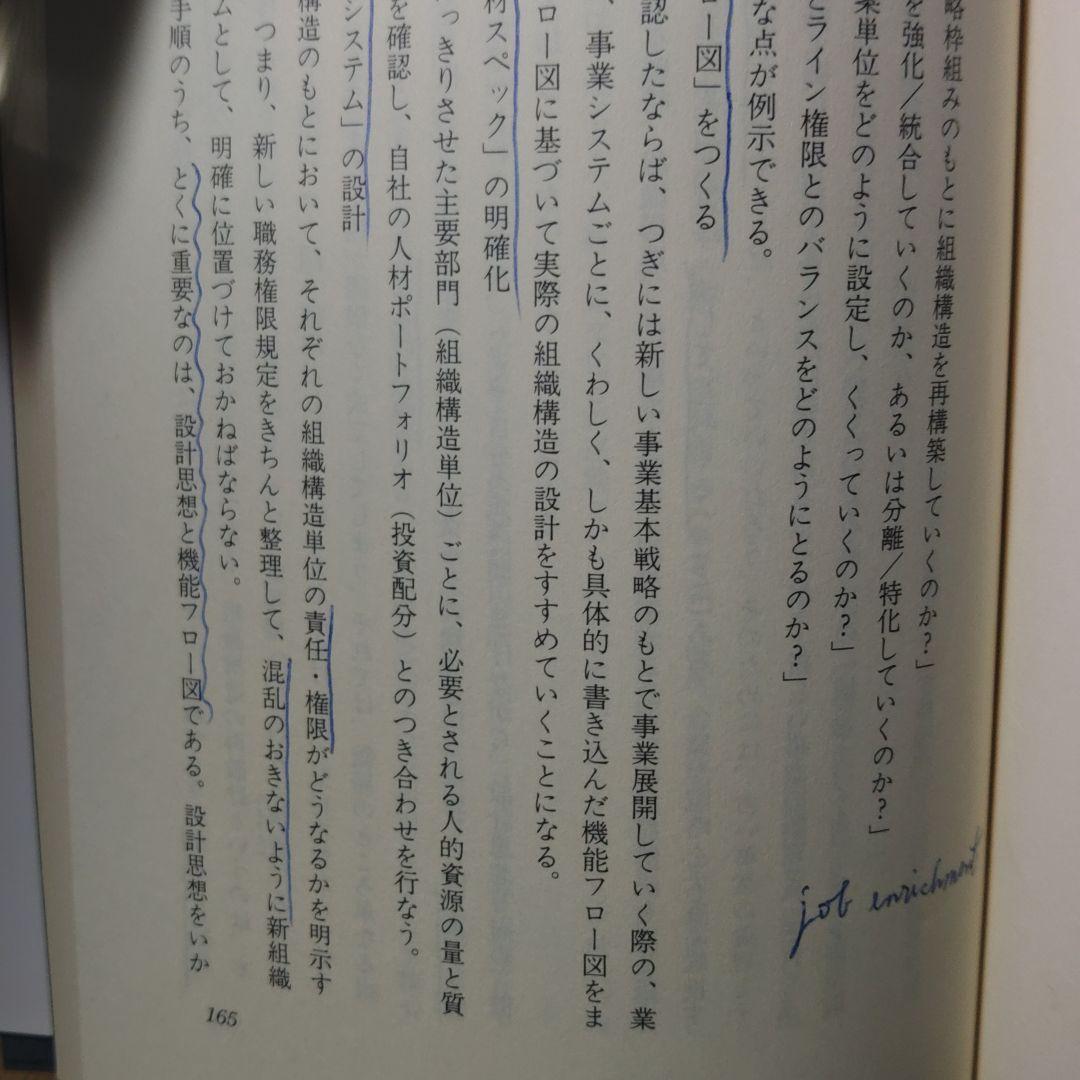 略枠組みのもとに組織構造を再構築していくのか?」
を強化/統合していくのか、あるいは分離/特化していくのか?」
業単位をどのように設定し、くくっていくのか?」
とライン権限とのバランスをどのようにとるのか?」
な点が例示できる。
ロー図」をつくる
認したならば、つぎには新しい事業基本戦略のもとで事業展開していく際の、業
、事業システムごとに、くわしく、しかも具体的に書き込んだ機能フロー図をま
ロー図に基づいて実際の組織構造の設計をすすめていくことになる。
材スペック」の明確化
っきりさせた主要部門(組織構造単位)ごとに、必要とされる人的資源の量と質
を確認し、自社の人材ポートフォリオ(投資配分)とのつき合わせを行なう。
システム」の設計
構造のもとにおいて、それぞれの組織構造単位の責任・権限がどうなるかを明示す
つまり、新しい職務権限規定をきちんと整理して、混乱のおきないように新組織
ムとして、明確に位置づけておかねばならない。
手順のうち、とくに重要なのは、設計思想と機能フロー図である。設計思想をいか
165
job enrichment